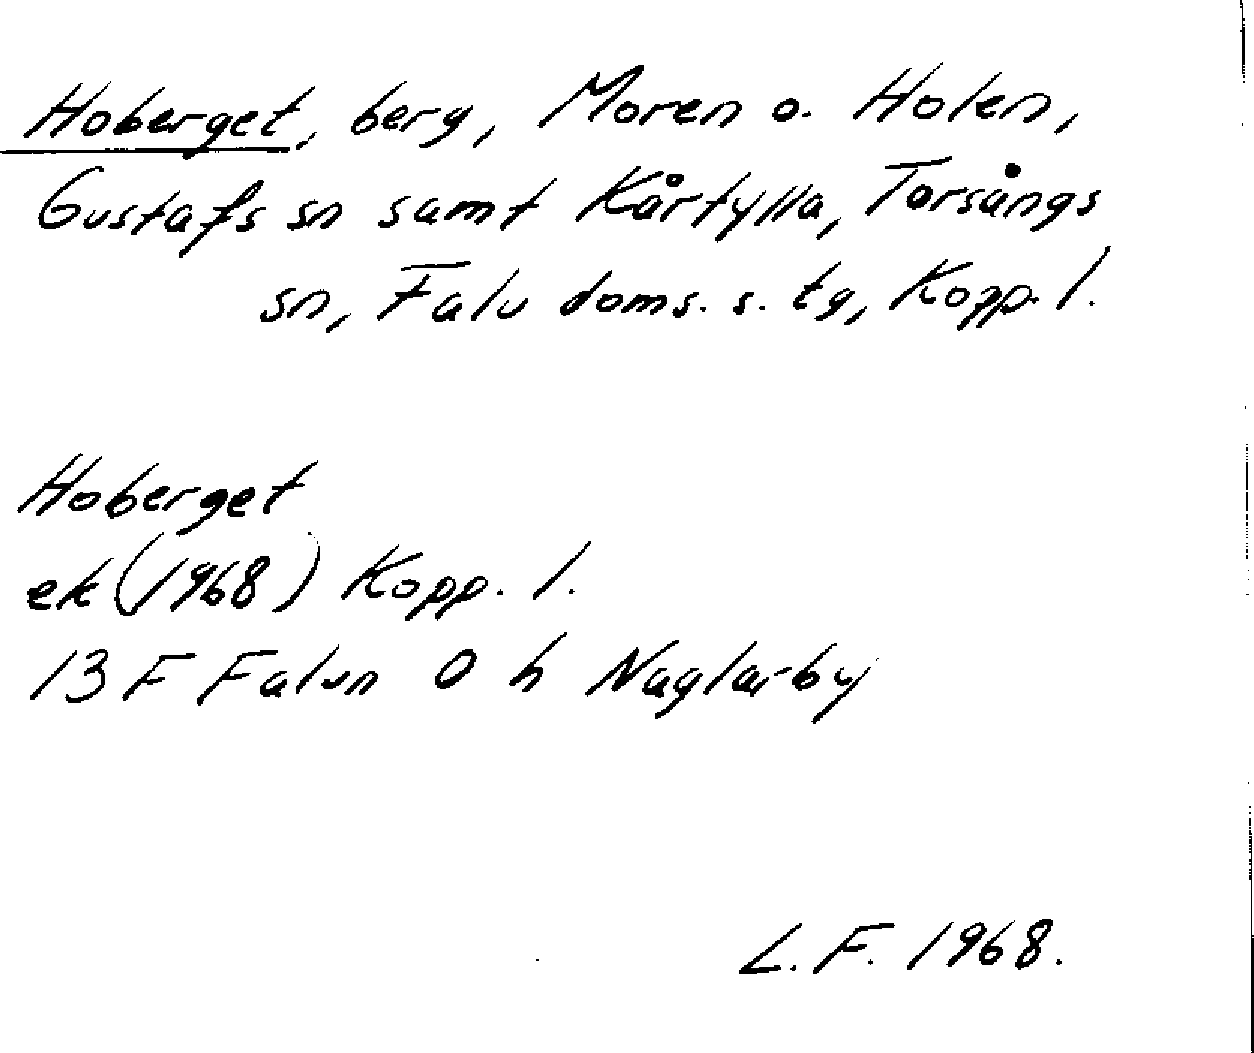 Hoberget, berg, Moren o. Holen,
Gustafs sn samt Kårtylla, Torsångs
sn, Falu doms. s. tg, Kopp. l.
Hoberget
ek (1968) Kopp. l.
13 F Falun 0 h Naglarby
L. F. 1968.